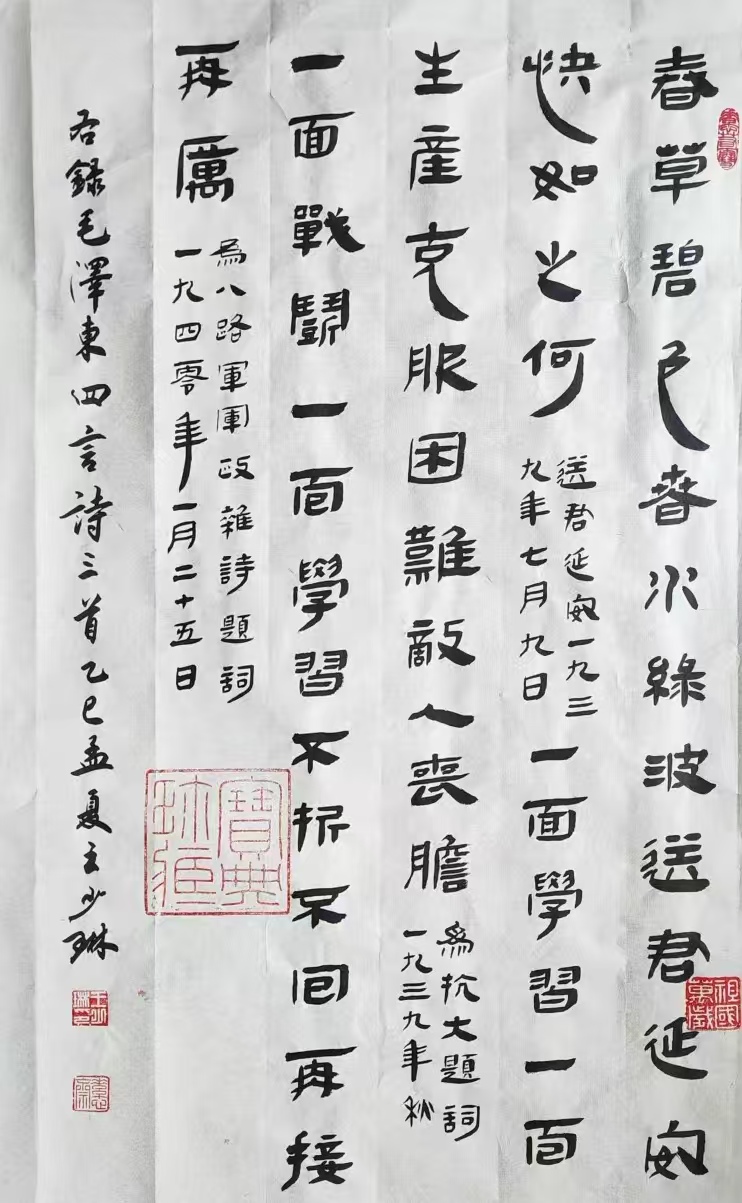 春草碧色春水綠波送君延安
快如之何
送君延安一九三
九年七月九日
一面學習一面
生產克服困難敵人喪膽
為抗大題詞
一九三九年秋
一面戰鬪一面學習不折不回再接
再厲
為八路軍軍政雜詩題詞
一九四零年一月二十五日
右錄毛澤東四言詩三首乙巳孟夏王少琳
祖國萬歲
寶典